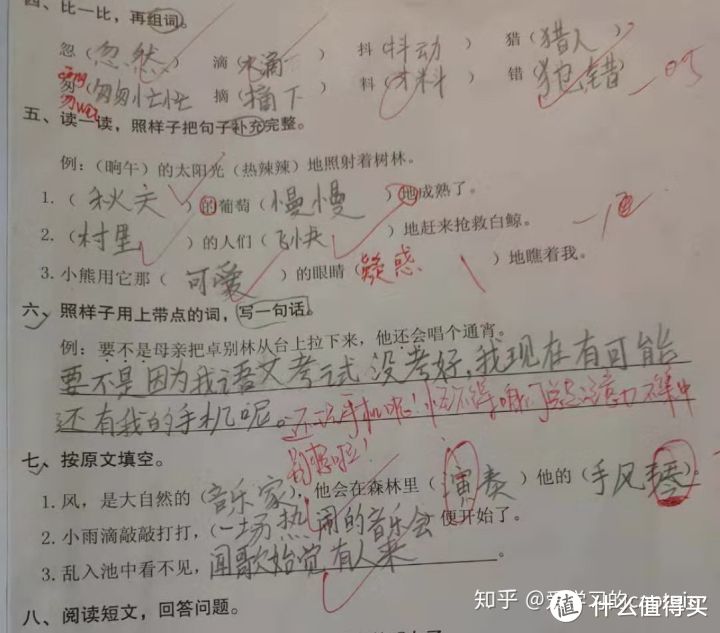 四、比一比，再组词。
忽（忽然） 滴（水滴） 抖（抖动） 猎（猎人）
匆（匆匆忙忙 摘（摘下） 料（木料） 错（犯错） -0.5
五、读一读，照样子把句子补充完整。
例：（晌午）的太阳光（热辣辣）地照射着树林。
1.（秋天）的葡萄（慢慢）地成熟了。
2.（村里）的人们（飞快）地赶来抢救白鲸。
3. 小熊用它那（可爱）的眼睛（疑惑）地瞧着我。
六、照样子用上带点的词，写一句话。
例：要不是母亲把卓别林从台上拉下来，他还会唱个通宵。
要不是因为我语文考试没考好，我现在有可能
还有我的手机呢。还玩手机呢！怪不得咱们总是注意力不集中
别想啦！
七、按原文填空。
1. 风，是大自然的（音乐家），他会在森林里（演奏）他的（手风琴）。
2. 小雨滴敲敲打打，（一场热闹的音乐会 便开始了。
3. 乱入池中看不见，闻歌始觉有人来。
八、阅读短文，回答问题。
知乎 @爱学习的captain
值 什么值得买